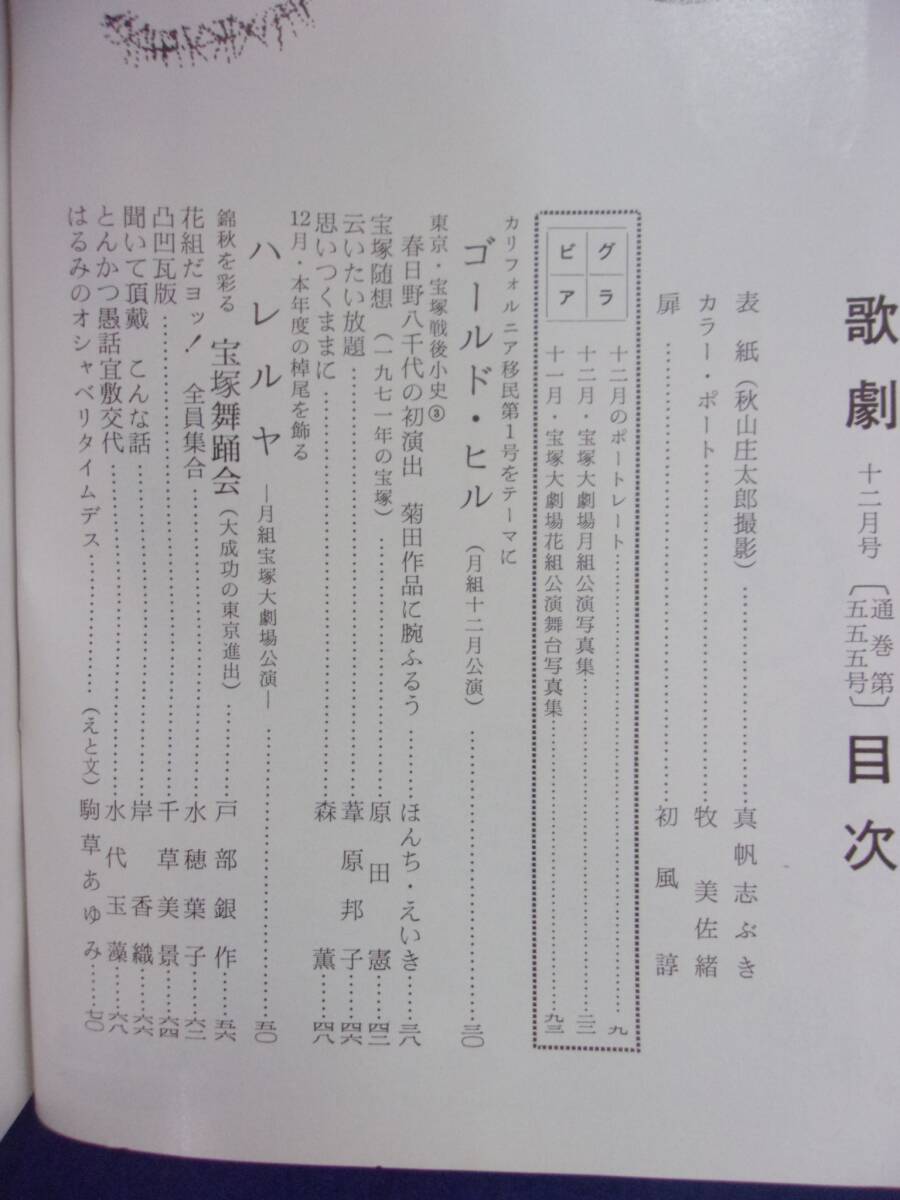 歌劇 十二月号 〔通巻第五五五号〕 目次
表紙（秋山庄太郎撮影）…………真帆志ぶき
カラー・ポート…………牧美佐緒
扉…………初風諄
グラビア
十二月のポートレート…………九
十二月・宝塚大劇場月組公演写真集…………二二
十一月・宝塚大劇場花組公演舞台写真集…………九三
カリフォルニア移民第1号をテーマに
ゴールド・ヒル（月組十二月公演）…………三〇
東京・宝塚戦後小史③
春日野八千代の初演出 菊田作品に腕ふるう……ほんち・えいき……三八
宝塚随想（一九七一年の宝塚）…………原田憲……四二
云いたい放題…………葦原邦子……四六
思いつくままに…………森薫……四八
12月・本年度の棹尾を飾る
ハレルヤ ―月組宝塚大劇場公演―…………五〇
錦秋を彩る 宝塚舞踊会（大成功の東京進出）………戸部銀作……五六
花組だヨッ！ 全員集合…………水穂葉子……六二
凸凹瓦版…………千草美景……六四
聞いて頂戴 こんな話…………岸香織……六六
とんかつ愚話宜敷交代…………水代玉藻……六八
はるみのオシャベリタイムデス…………（えと文）駒草あゆみ……七〇